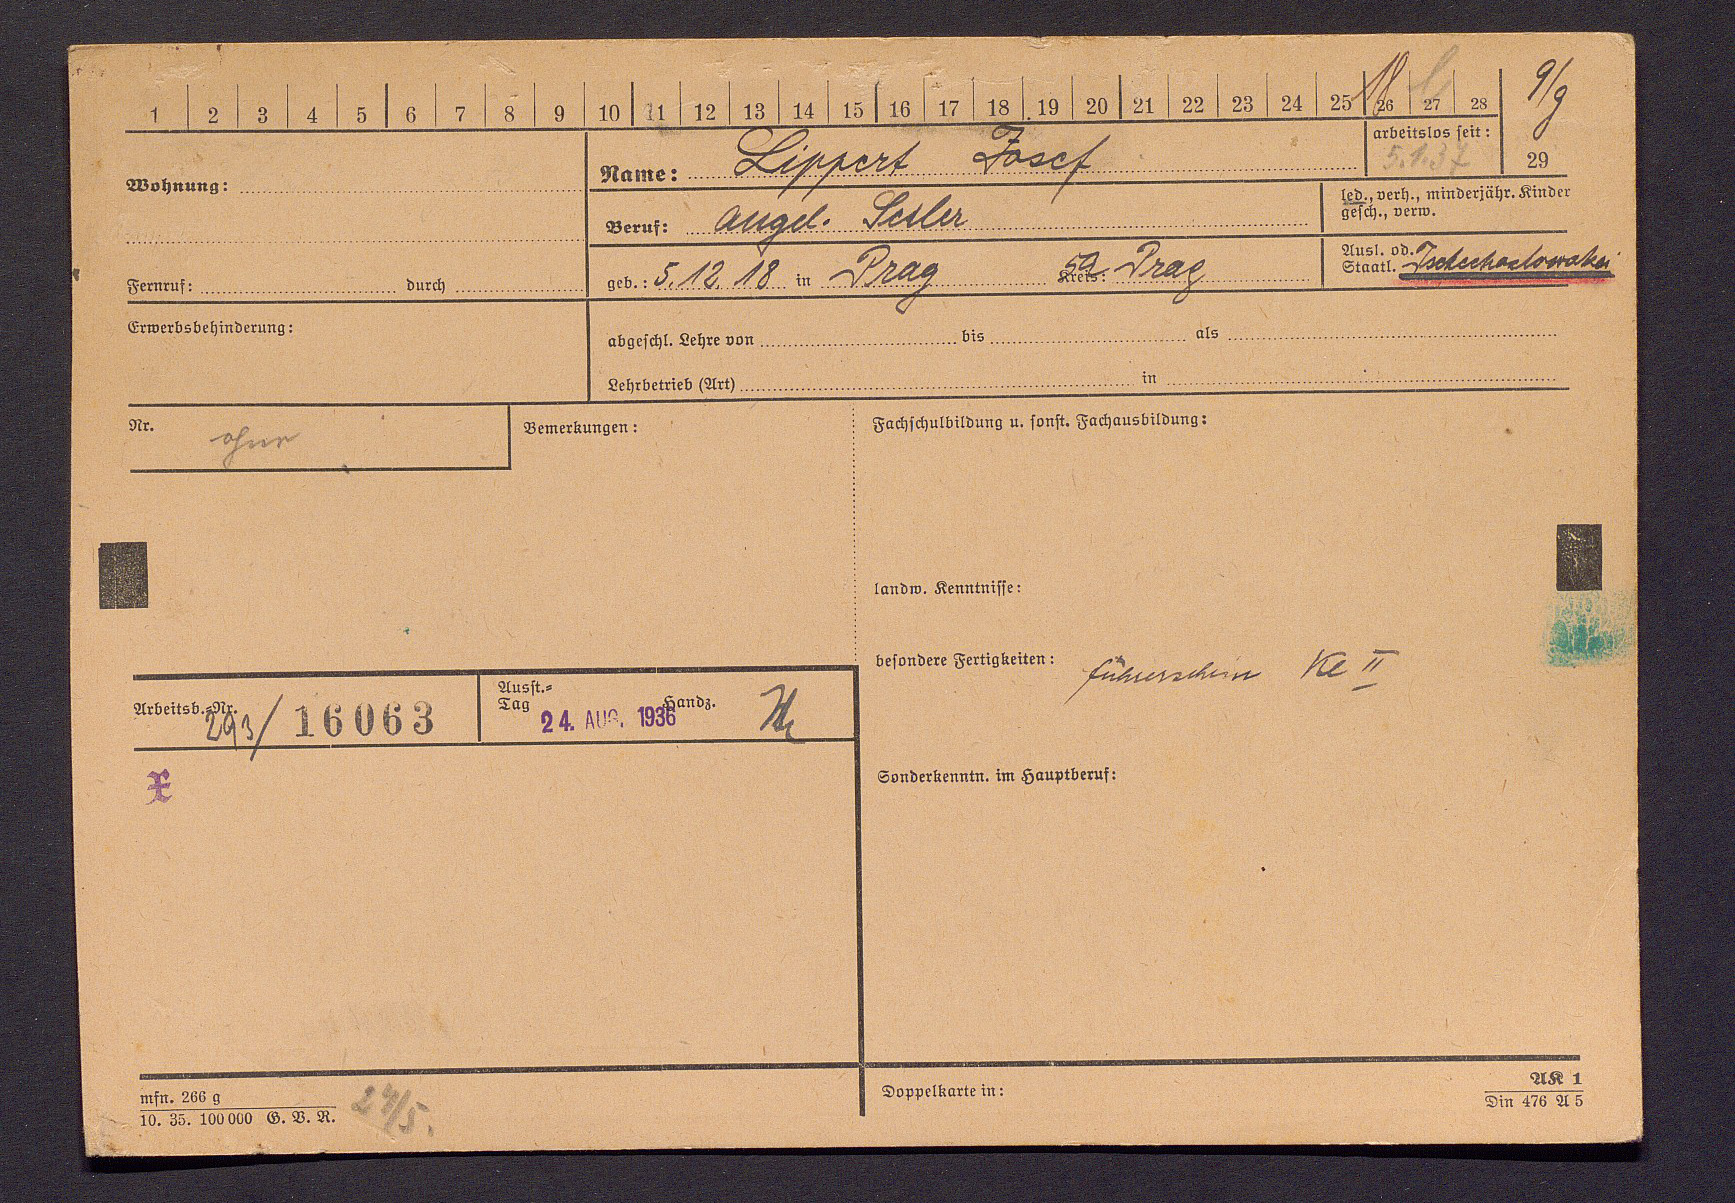 1 2 3 4 5 6 7 8 9 10 11 12 13 14 15 16 17 18 19 20 21 22 23 24 25 26 27 28
9/9
arbeitslos seit:
5.1.37
29
Wohnung:
Name: Lippert Josef
Beruf: angel.
led., verh., minderjähr. Kinder
gesch., verw.
Fernruf: durch
geb.: 5.12.18 in Prag Kreis: Prag
Ausl. od.
Staatl. Tschechoslowakei
Erwerbsbehinderung:
abgeschl. Lehre von bis als
Lehrbetrieb (Art) in
Nr. ohne
Bemerkungen:
Fachschulbildung u. sonst. Fachausbildung:
landw. Kenntnisse:
besondere Fertigkeiten: Führerschein Kl II
Arbeitsb.-Nr. 293/16063
Ausst.-
Tag 24. AUG. 1936 Handz.
Sonderkenntn. im Hauptberuf:
mfn. 266 g
10. 35. 100000 G. V. R.
24/5.
Doppelkarte in:
AK 1
Din 476 A 5